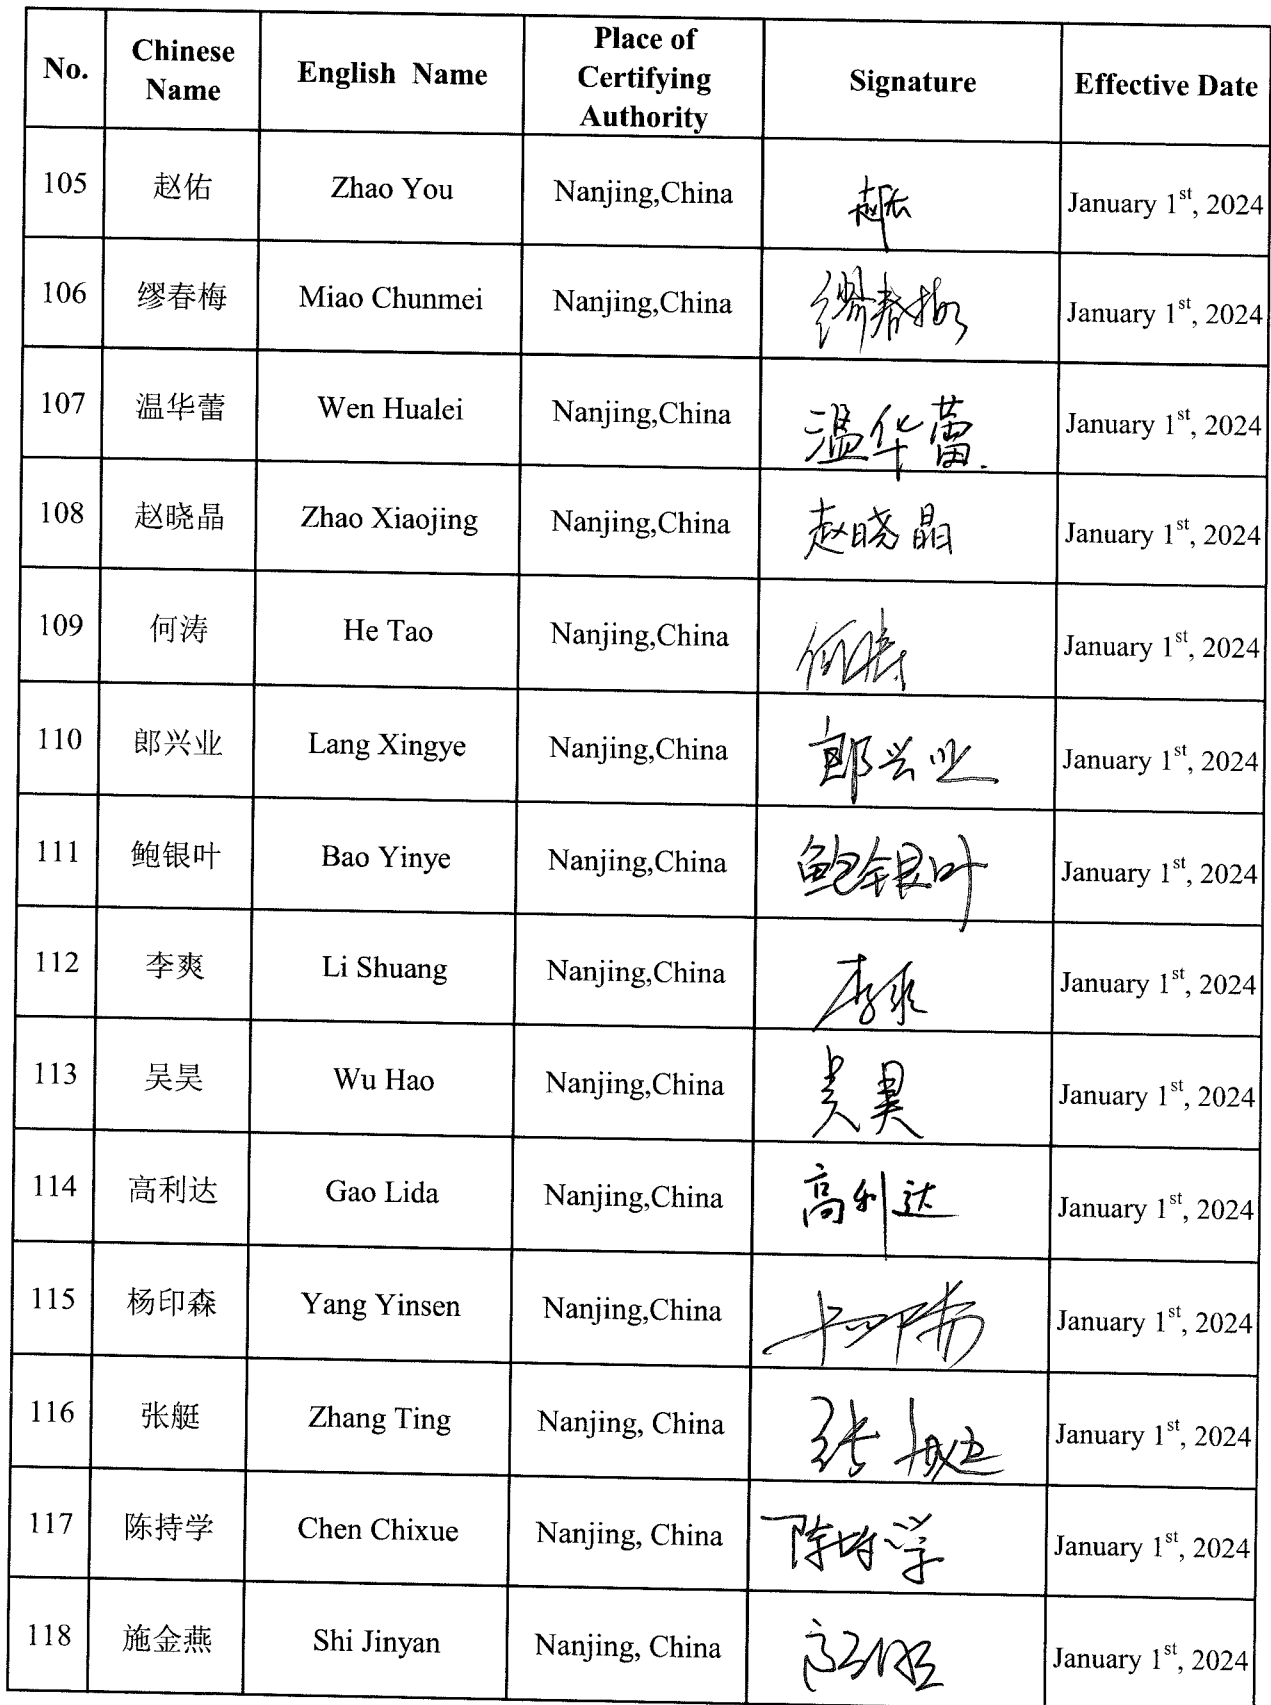 No.
Chinese
Name
English Name
Place of
Certifying
Authority
Signature
Effective Date
105 赵佑 Zhao You Nanjing,China January 1st, 2024
106 缪春梅 Miao Chunmei Nanjing,China 缪春梅 January 1st, 2024
107 温华蕾 Wen Hualei Nanjing,China 温华蕾 January 1st, 2024
108 赵晓晶 Zhao Xiaojing Nanjing,China 赵晓晶 January 1st, 2024
109 何涛 He Tao Nanjing,China 何涛 January 1st, 2024
110 郎兴业 Lang Xingye Nanjing,China 郎兴业 January 1st, 2024
111 鲍银叶 Bao Yinye Nanjing,China 鲍银叶 January 1st, 2024
112 李爽 Li Shuang Nanjing,China 李爽 January 1st, 2024
113 吴昊 Wu Hao Nanjing,China 吴昊 January 1st, 2024
114 高利达 Gao Lida Nanjing,China 高利达 January 1st, 2024
115 杨印森 Yang Yinsen Nanjing,China January 1st, 2024
116 张艇 Zhang Ting Nanjing, China 张艇 January 1st, 2024
117 陈持学 Chen Chixue Nanjing, China 陈持学 January 1st, 2024
118 施金燕 Shi Jinyan Nanjing, China January 1st, 2024